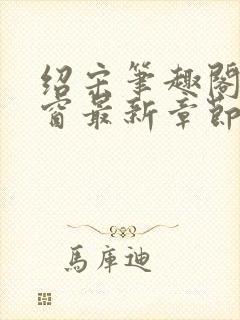 绍宋筆趣閣
窗最新章節
馬庫迪